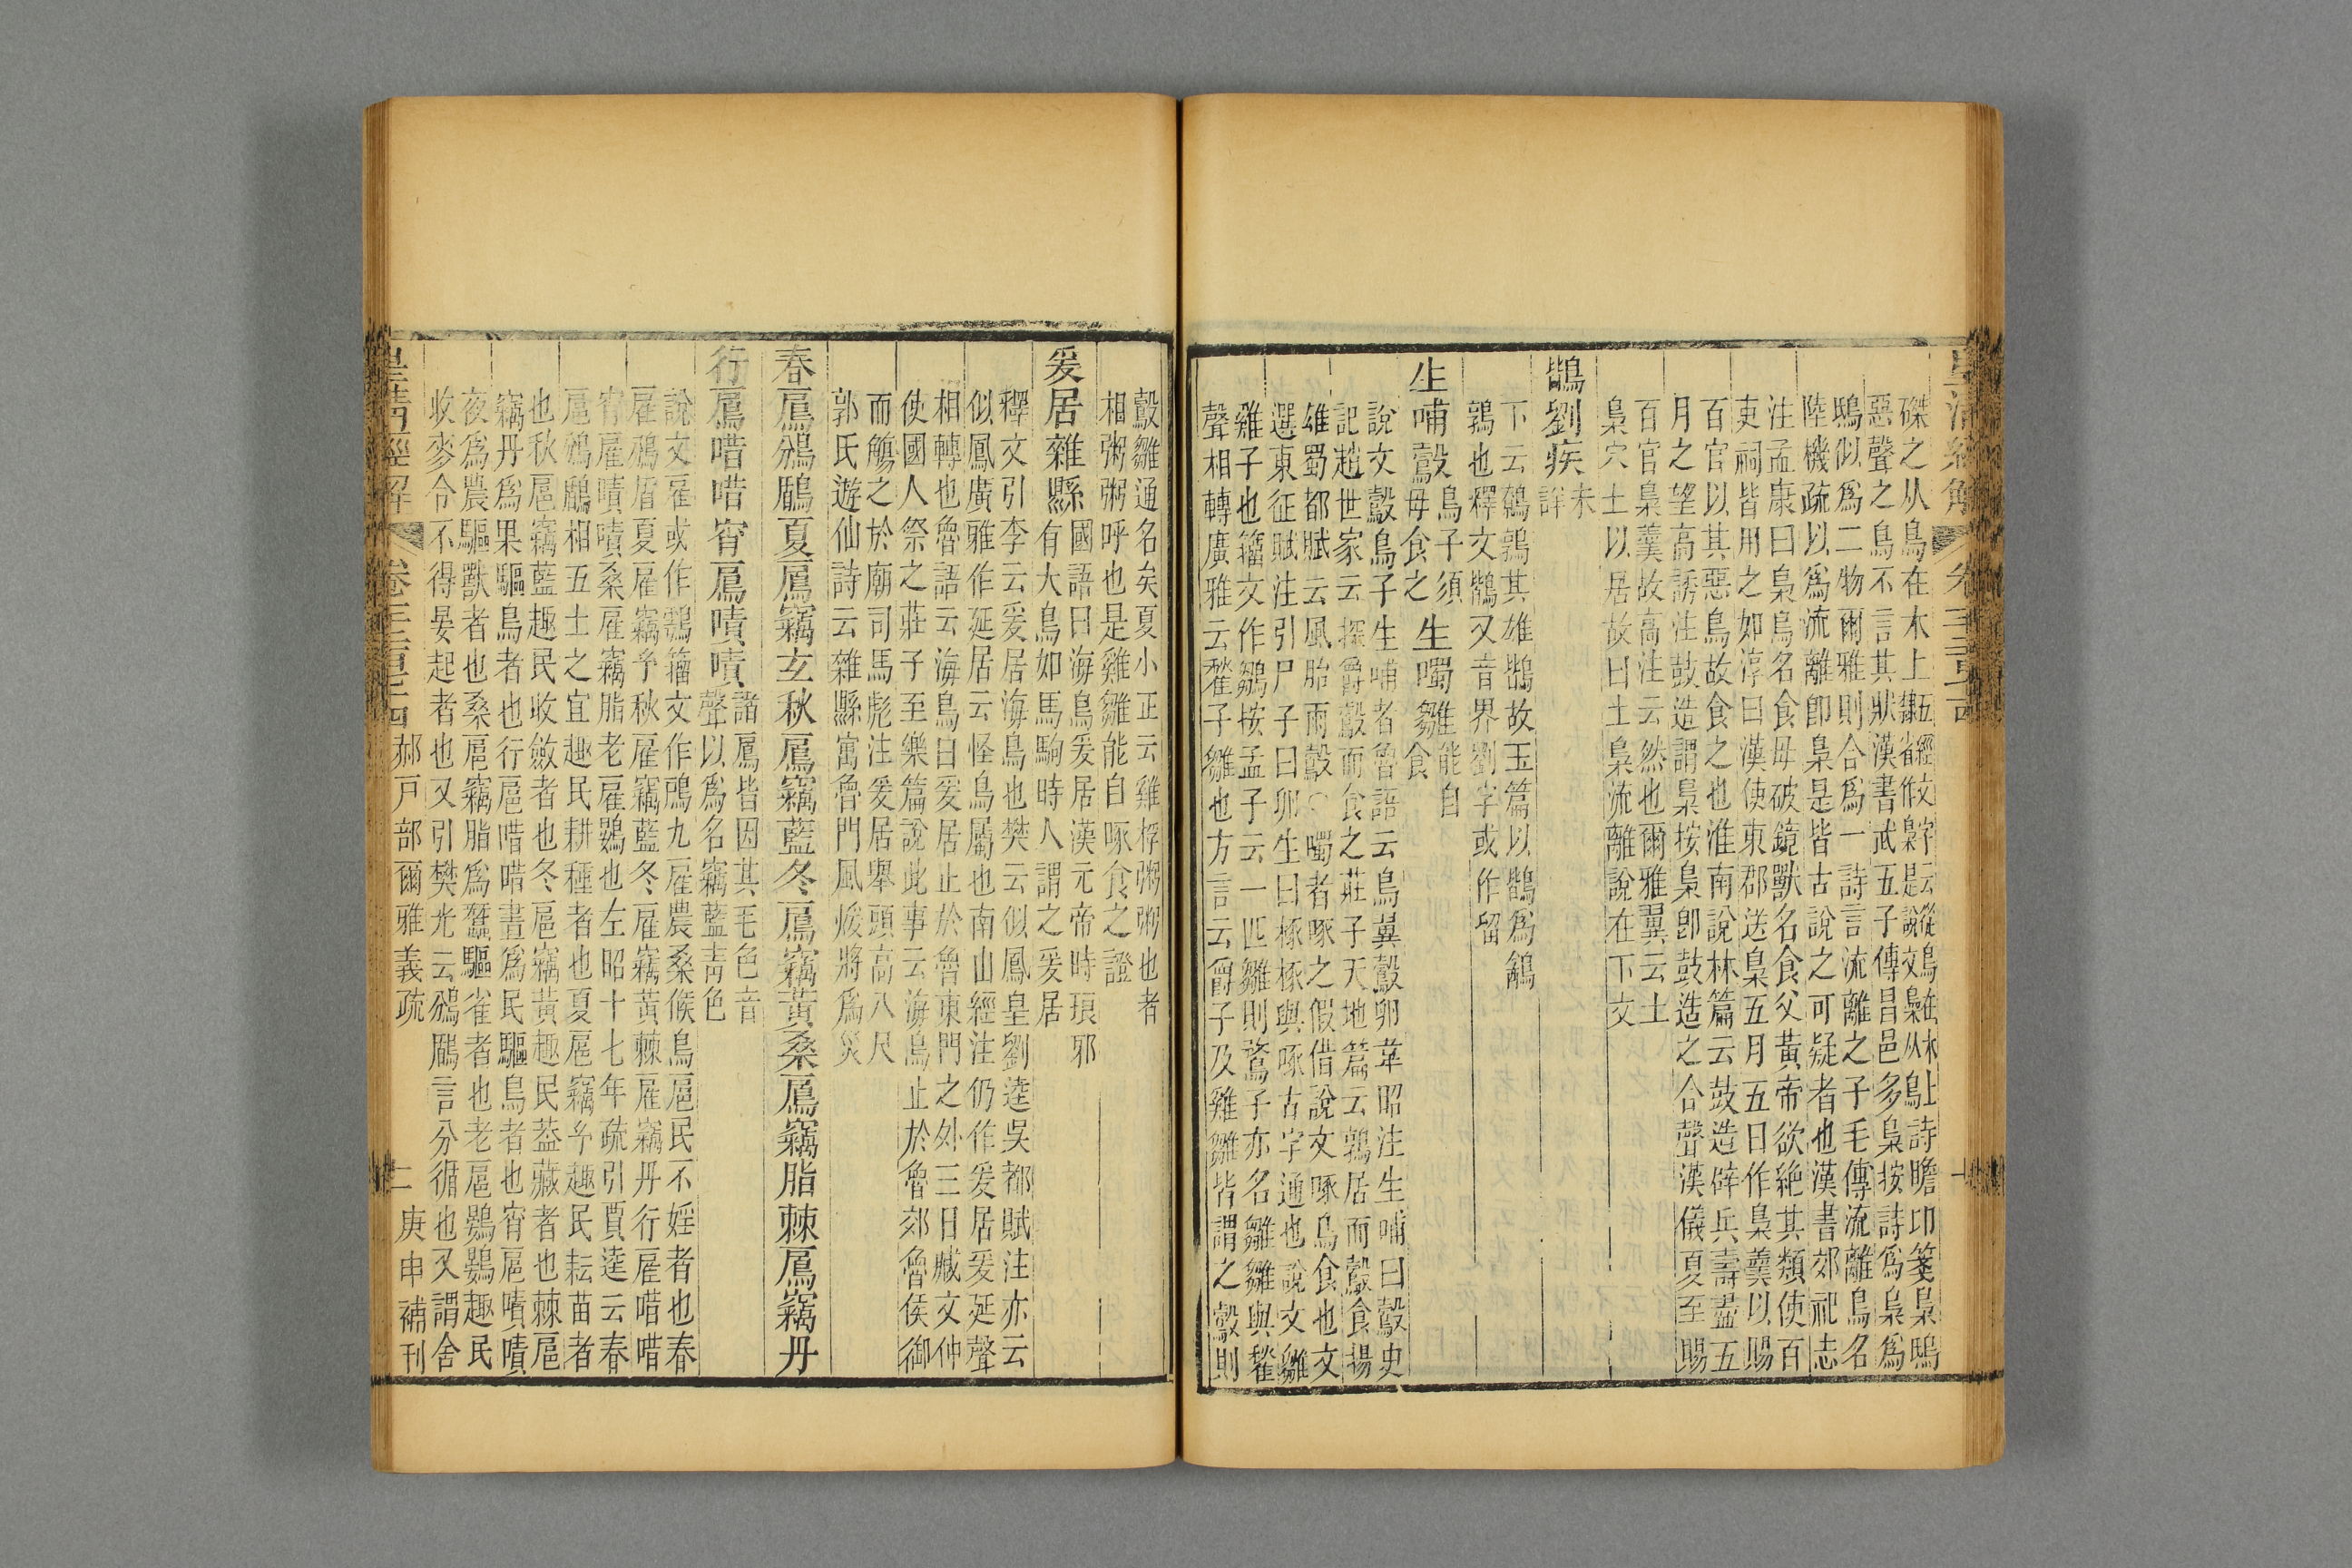 皇清經解
磔之从鳥在木上五經文字云從鳥在木上隸省作梟是說文梟从鳥詩瞻卬箋梟鴟
惡聲之鳥不言其狀漢書武五子傳昌邑多梟按詩爲梟爲
鴟似爲二物爾雅則合爲一詩言流離之子毛傳流離鳥名
陸機疏以爲流離卽梟是皆古說之可疑者也漢書郊祀志
注孟康曰梟鳥名食母破鏡獸名食父黃帝欲絶其類使百
吏祠皆用之如淳曰漢使東郡送梟五月五日作梟羹以賜
百官以其惡鳥故食之也淮南說林篇云鼓造辟兵壽盡五
月之望高誘注鼓造謂梟按梟卽鼓造之合聲漢儀夏至賜
百官梟羹故高注云然也爾雅翼云土
梟穴土以居故曰土梟流離說在下文
鶛劉疾未詳
下云鷯鶉其雄鶛故玉篇以鶛爲鶕
鶉也釋文鶛又音界劉字或作留
生哺鷇鳥子須母食之生噣雛能自食
說文鷇鳥子生哺者魯語云鳥翼鷇卵韋昭注生哺曰鷇史
記趙世家云探爵鷇而食之莊子天地篇云鶉居而鷇食揚
雄蜀都賦云風胎雨鷇○噣者啄之假借說文啄鳥食也文
選東征賦注引尸子曰卵生曰椓椓與啄古字通也說文雛
雞子也籀文作鶵按孟子云一匹雛則鶩子亦名雛雛與
聲相轉廣雅云子雛也方言云爵子及雞雛皆謂之鷇則
鷇雛通名矣夏小正云雞桴粥粥也者
相粥粥呼也是雞雛能自啄食之證
爰居雜縣國語曰海鳥爰居漢元帝時琅邪有大鳥如馬駒時人謂之爰居
釋文引李云爰居海鳥也樊云似鳳皇劉逵吳都賦注亦云
似鳳廣雅作延居云怪鳥屬也南山經注仍作爰居爰延聲
相轉也魯語云海鳥曰爰居止於魯東門之外三日臧文仲
使國人祭之莊子至樂篇說此事云海鳥止於魯郊魯侯御
而觴之於廟司馬彪注爰居舉頭高八尺
郭氏遊仙詩云雜縣寓魯門風煖將爲災
春鳸鳻鶞夏鳸竊玄秋鳸竊藍冬鳸竊黃桑鳸竊脂棘鳸竊丹
行鳸唶唶宵鳸嘖嘖諸鳸皆因其毛色音聲以爲名竊藍靑色
說文雇或作䳺籀文作鳸九雇農桑候鳥扈民不婬者也春
雇鳻盾夏雇竊予秋雇竊藍冬雇竊黃棘雇竊丹行雇唶唶
宵雇嘖嘖桑雇竊脂老雇鷃也左昭十七年疏引賈逵云春
扈鳻鶞相五土之宜趣民耕種者也夏扈竊予趣民耘苗者
也秋扈竊藍趣民收斂者也冬扈竊黃趣民葢藏者也棘扈
竊丹爲果驅鳥者也行扈唶唶晝爲民驅鳥者也宵扈嘖嘖
夜爲農驅獸者也桑扈竊脂爲蠶驅雀者也老扈鷃鷃趣民
收麥令不得晏起者也又引樊光云鳻鶞言分循也又謂舍
皇清經解
郝戶部爾雅義疏
二
庚申補刊